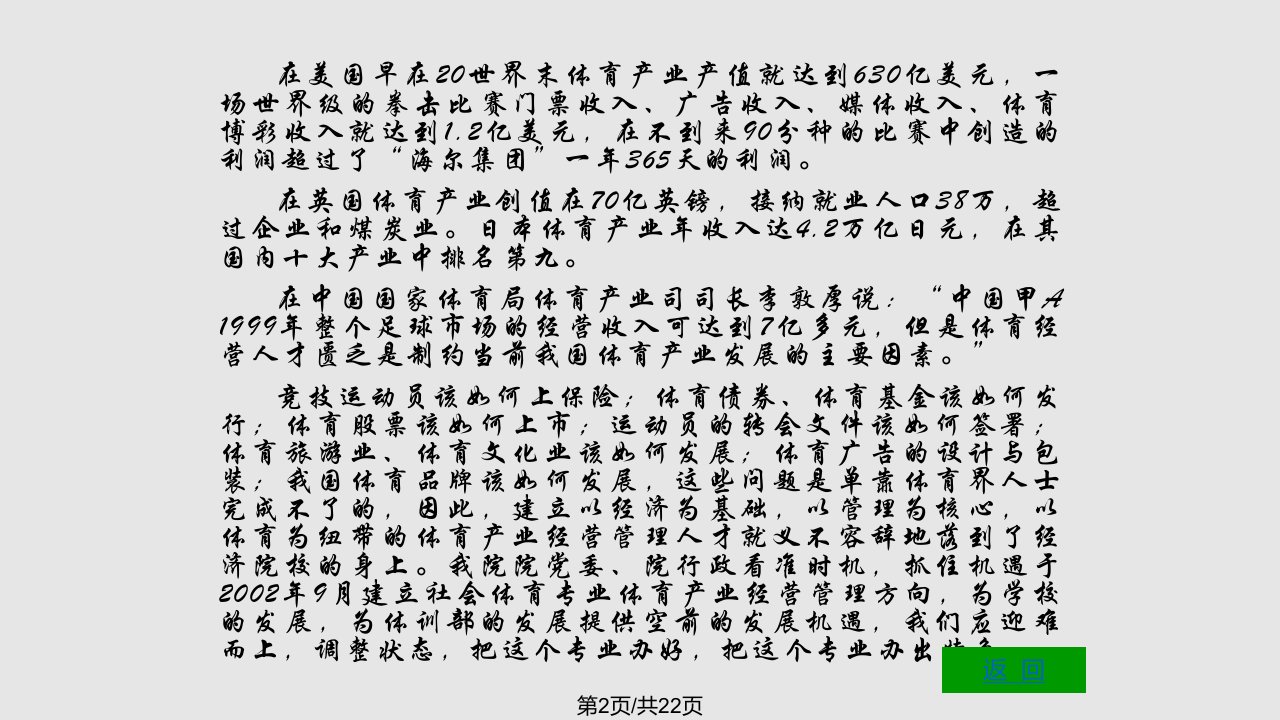 在美国早在20世界末体育产业产值就达到630亿美元，一
场世界级的拳击比赛门票收入、广告收入、媒体收入、体育
博彩收入就达到1.2亿美元，在不到来90分种的比赛中创造的
利润超过了“海尔集团”一年365天的利润。
在英国体育产业创值在70亿英镑，接纳就业人口38万，超
过企业和煤炭业。日本体育产业年收入达4.2万亿日元，在其
国内十大产业中排名第九。
在中国国家体育局体育产业司司长李敦厚说：“中国甲A
1999年整个足球市场的经营收入可达到7亿多元，但是体育经
营人才匮乏是制约当前我国体育产业发展的主要因素。”
竞技运动员该如何上保险；体育债券、体育基金该如何发
行；体育股票该如何上市；运动员的转会文件该如何签署；
体育旅游业、体育文化业该如何发展；体育广告的设计与包
装；我国体育品牌该如何发展，这些问题是单靠体育界人士
完成不了的，因此，建立以经济为基础，以管理为核心，以
体育为纽带的体育产业经营管理人才就义不容辞地落到了经
济院校的身上。我院院党委、院行政看准时机，抓住机遇于
2002年9月建立社会体育专业体育产业经营管理方向，为学校
的发展，为体训部的发展提供空前的发展机遇，我们应迎难
而上，调整状态，把这个专业办好，把这个专业办出
返 回
第2页/共22页